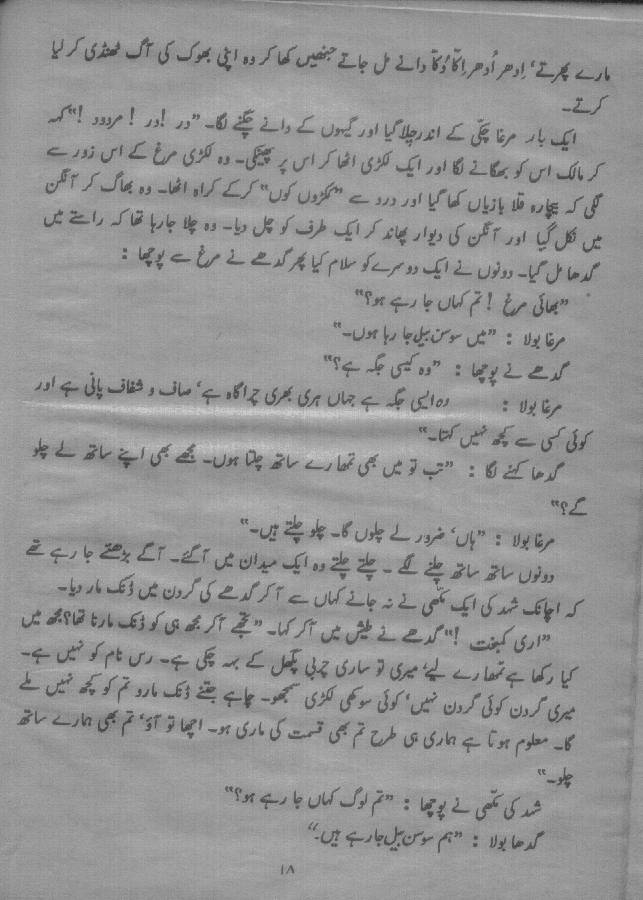 مارے پھرتے‘ اِدھر اُدھر اِکّا دُکّا دانے مل جاتے جنھیں کھا کر وہ اپنی بھوک کی آگ ٹھنڈی کر لیا
کرتے۔
ایک بار مرغا چکّی کے اندر چلا گیا اور گیہوں کے دانے چگنے لگا۔ ”در !در ! مردود !“ کہہ
کر مالک اس کو بھگانے لگا اور ایک لکڑی اٹھا کر اس پر پھینکی۔ وہ لکڑی مرغ کے اس زور سے
لگی کہ بیچارہ قلا بازیاں کھا گیا اور درد سے ”ککڑوں کوں“ کرکے کراہ اٹھا۔ وہ بھاگ کر آنگن
میں نکل گیا اور آنگن کی دیوار پھاند کر ایک طرف کو چل دیا۔ وہ چلا جا رہا تھا کہ راستے میں
گدھا مل گیا۔ دونوں نے ایک دوسرے کو سلام کیا پھر گدھے نے مرغ سے پوچھا :
”بھائی مرغ ! تم کہاں جا رہے ہو؟“
مرغا بولا : ”میں سوسن بیل جا رہا ہوں۔“
گدھے نے پوچھا : ”وہ کیسی جگہ ہے؟“
مرغا بولا : وہ ایسی جگہ ہے جہاں ہری بھری چراگاہ ہے‘ صاف و شفاف پانی ہے اور
کوئی کسی سے کچھ نہیں کہتا۔“
گدھا کہنے لگا : ”تب تو میں بھی تمھارے ساتھ چلتا ہوں۔ مجھے بھی اپنے ساتھ لے چلو
گے؟“
مرغا بولا : ”ہاں‘ ضرور لے چلوں گا۔ چلو چلتے ہیں۔“
دونوں ساتھ ساتھ چلنے لگے ۔ چلتے چلتے وہ ایک میدان میں آگئے۔ آگے بڑھتے جا رہے تھے
کہ اچانک شہد کی ایک مکھّی نے نہ جانے کہاں سے آ کر گدھے کی گردن میں ڈنک مار دیا۔
”اری کمبخت !“ گدھے نے طیش میں آ کر کہا۔ ”تجھے آکر مجھ ہی کو ڈنک مارنا تھا؟ مجھ میں
کیا رکھا ہے تمھارے لیے‘ میری تو ساری چربی پگھل کے بہہ چکی ہے۔ رس نام کو نہیں ہے۔
میری گردن کوئی گردن نہیں‘ کوئی سوکھی لکڑی سمجھو۔ چاہے جتنے ڈنک مارو تم کو کچھ نہیں ملے
گا۔ معلوم ہوتا ہے ہماری ہی طرح تم بھی قسمت کی ماری ہو۔ اچھا تو آؤ‘ تم بھی ہمارے ساتھ
چلو۔“
شہد کی مکھّی نے پوچھا : ”تم لوگ کہاں جا رہے ہو؟“
گدھا بولا : ”ہم سوسن بیل جا رہے ہیں۔“
۱۸